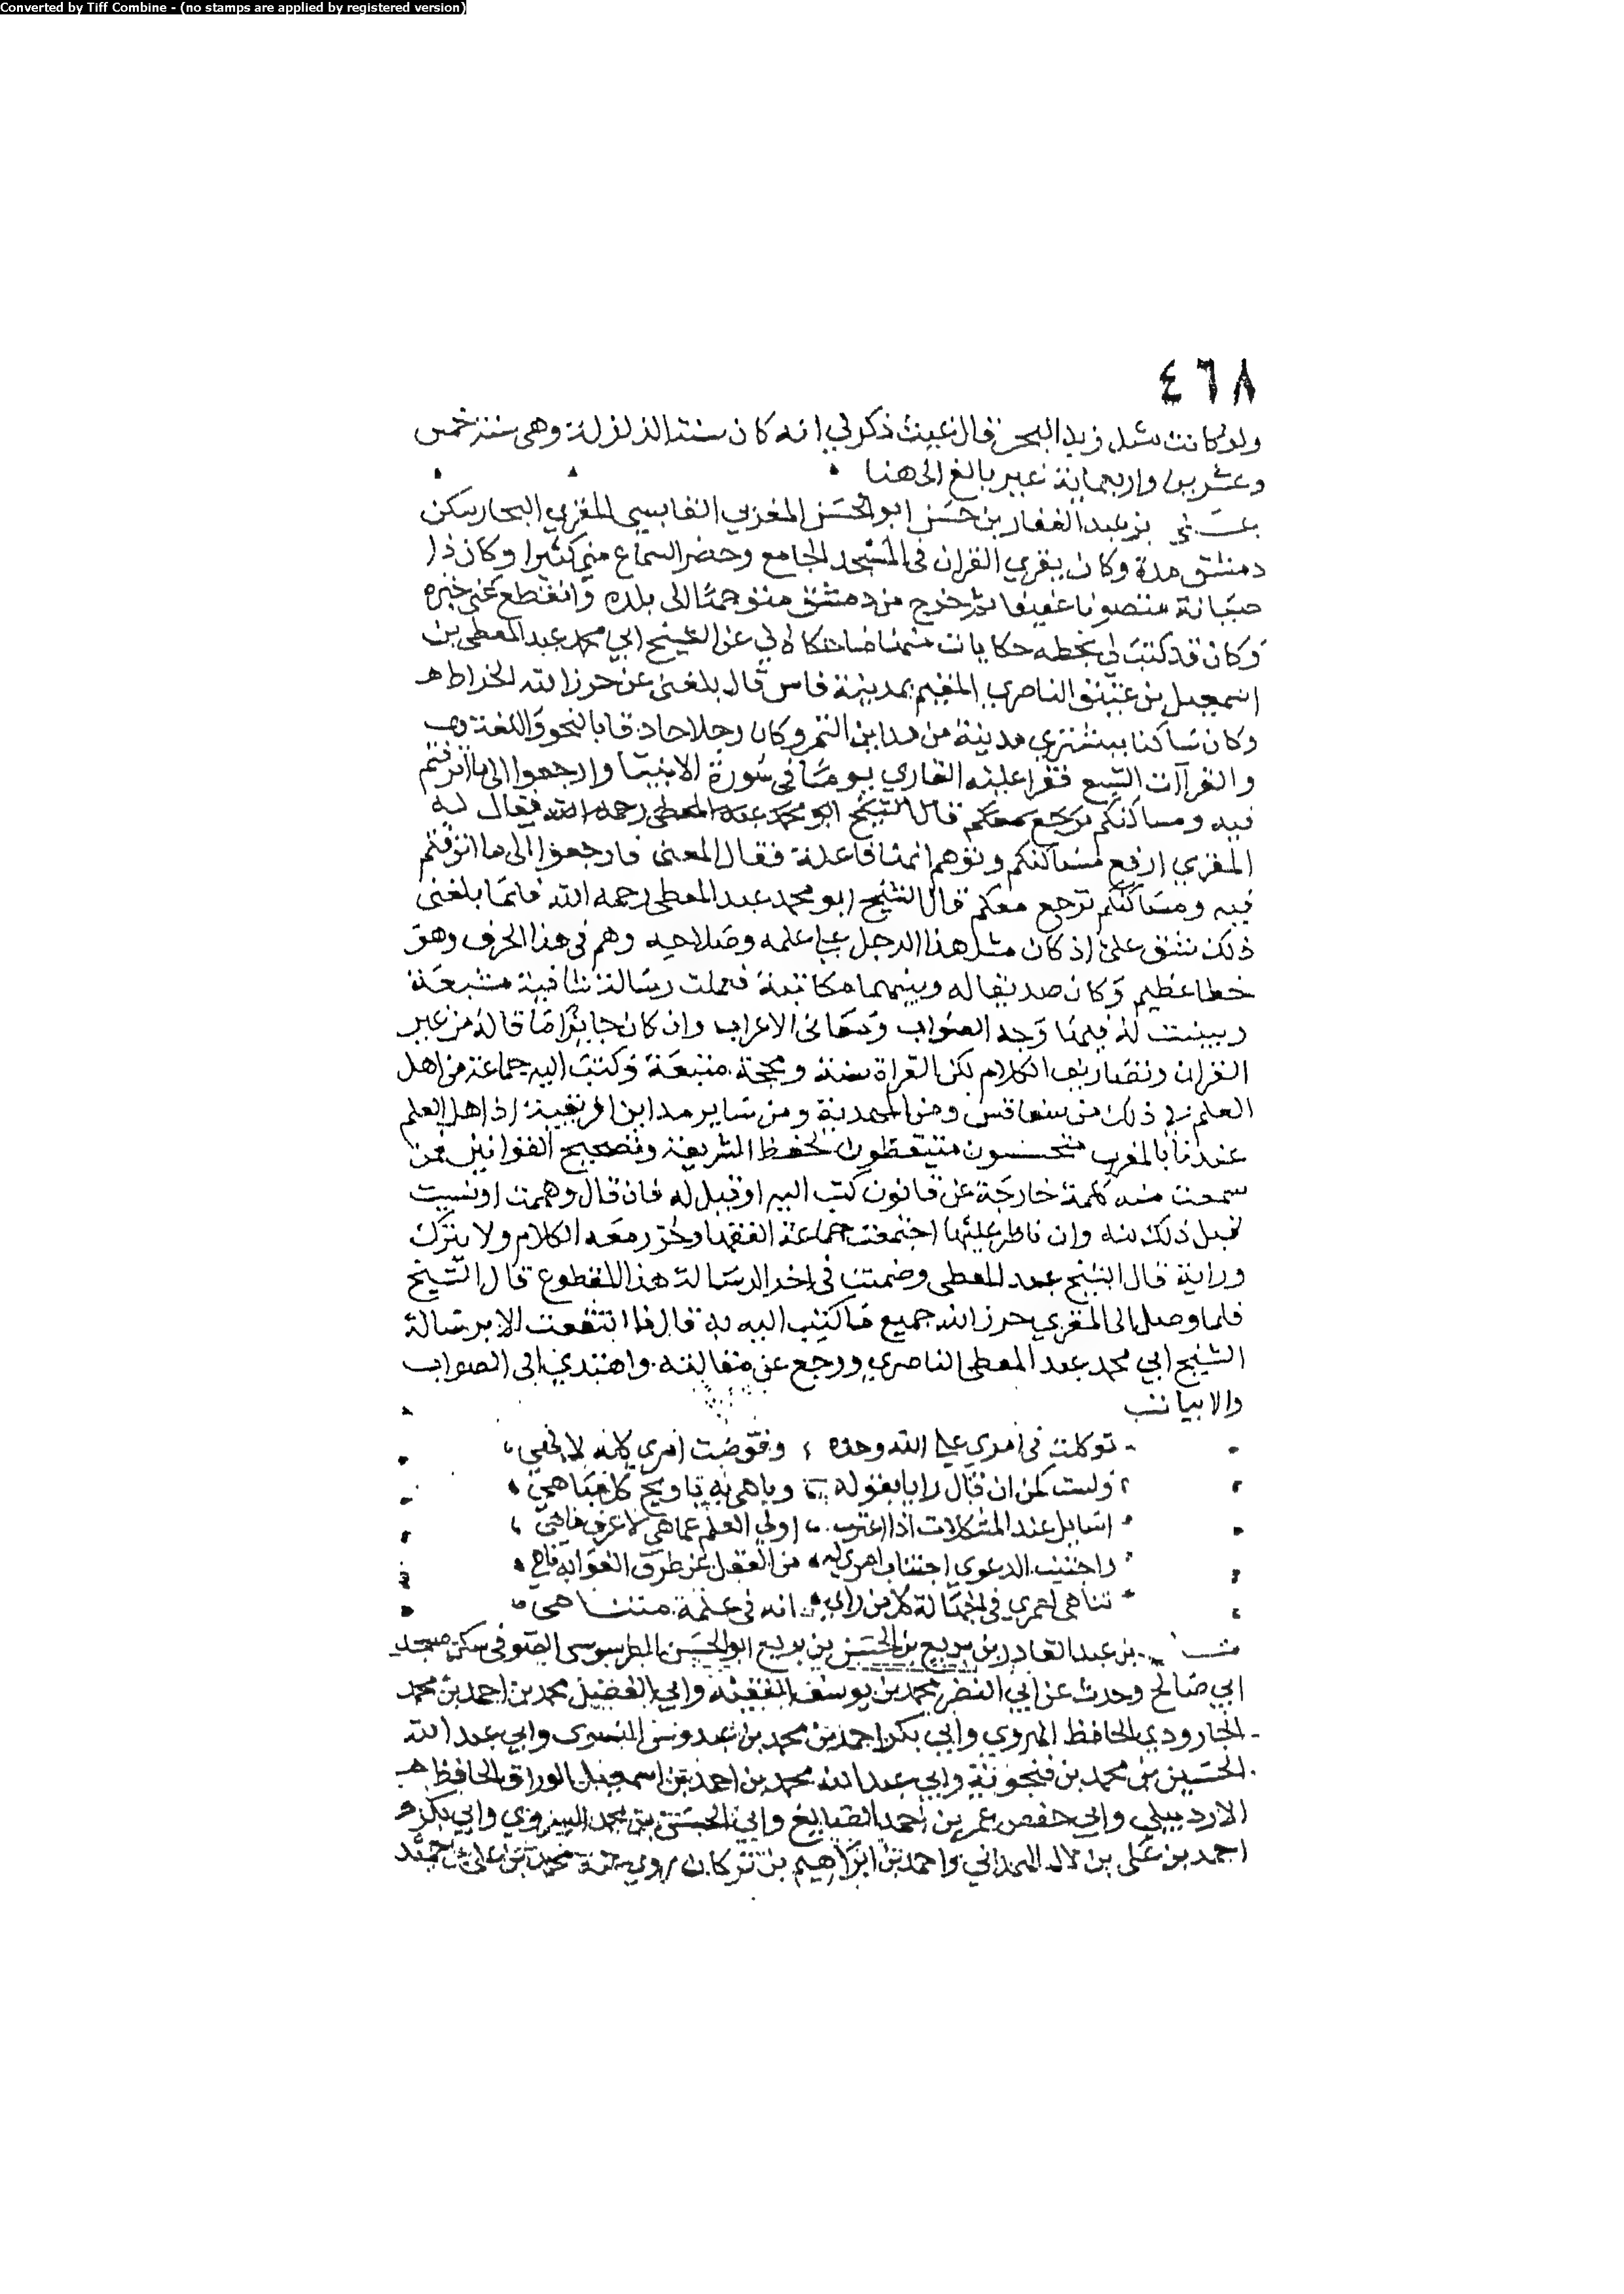 Converted by Tiff Combine - (no stamps are applied by registered version)
٤٦٨
ولو كانت مثل زبد البحر قال غيث ذكر لي انه كان سنة الزلزلة وهي سنة خمس
وعشرين واربعماية غير بالغ الى هنا
بن عبد الغفار بن حسن ابو الحسن المغربي القابسي المقري النجار سكن
دمشق مدة وكان يقري القران في المسجد الجامع وحضر السماع مني كثيرا وكان ذا
صيانة متصونا عفيفا ثم خرج من دمشق متوجها الى بلده وانقطع عني خبره
وكان قد كتب لي بخطه حكايات منها ما حكاه لي عن الشيخ ابي محمد عبد المعطي بن
اسمعيل بن عتيق الناصري المقيم بمدينة فاس قال بلغني عن حرز الله الخراط
وكان ساكنا مدينة من مداين التمر وكان رجلا حاذقا بالنحو واللغة
والقراات السبع فقرا عليه القاري يوما في سورة الانبيا وارجعوا الى ما اترفتم
فيه ومساكنكم ترجع معكم قال الشيخ ابو محمد عبد المعطي رحمه الله فقال له
المقري ارفع مساكنكم وتوهم انها فاعلة فقال المعنى فارجعوا الى ما اترفتم
فيه ومساكنكم ترجع معكم قال الشيخ ابو محمد عبد المعطي رحمه الله فلما بلغني
ذلك شق علي اذ كان مثل هذا الرجل على علمه وصلاحه وهم في هذا الحرف وهو
خطا عظيم وكان صديقا له وبينهما مكاتبة فعملت رسالة شافية مشبعة
وبينت له فيها وجه الصواب ومعاني الاعراب وان كان جايزا ما قاله من غير
القران وتصاريف الكلام لكن القراة سنة ومحجة متبعة وكتب اليه جماعة من اهل
العلم في ذلك من سفاقس ومن المهدية ومن ساير مداين افريقية اذ اهل العلم
عندنا بالمغرب متحسسون متيقظون لحفظ الشريعة وتصحيح القوانين فمن
سمعت منه كلمة خارجة عن قانون كتب اليه او قيل له فان قال وهمت او نسيت
قبل ذلك منه وان ناظر عليها اجتمعت جماعة الفقها وحرر معه الكلام ولا يترك
ورايه قال الشيخ عبد المعطي وضمنت في اخر الرسالة هذا المقطوع قال الشيخ
فلما وصل الى المقري حرز الله جميع ما كتب اليه به قال ما انتفعت الا برسالة
الشيخ ابي محمد عبد المعطي الناصري ورجع عن مقالته واهتدي الى الصواب
والابيات
توكلت في امري على الله وحده وفوضت امري كله لالهي
ولست كمن ان قال رايا بقوله وباهى به يا ويح كل مباهي
اسايل عند المشكلات اذا اعترت اولي العلم عما هي لاعرف ما هي
واجتنب الدعوى اجتناب امري له من العقل عن طرق الغواية ناهي
تناهى لعمري في الجهالة كل من راى انه في علمه متناهي
بن عبد القادر بن بزيع بن الحسن بن بزيع ابو الحسن الطرسوسي الصوفي سكن مسجد
ابي صالح وحدث عن ابي النضر محمد بن يوسف الفقيه وابي الفضيل محمد بن احمد بن محمد
الجارودي الحافظ الهروي وابي بكر احمد بن محمد بن عبدوس النسوى وابي عبد الله
الحسين بن محمد بن فنجوية وابي عبد الله محمد بن احمد بن اسمعيل الوراق الحافظ
الاردبيلي وابي حفص عمر بن احمد الصايغ وابي الحسن بن محمد وابي بكر
احمد بن علي بن لال الهمداني واحمد بن ابراهيم بن تركان روى عنه محمد بن علي بن احمد